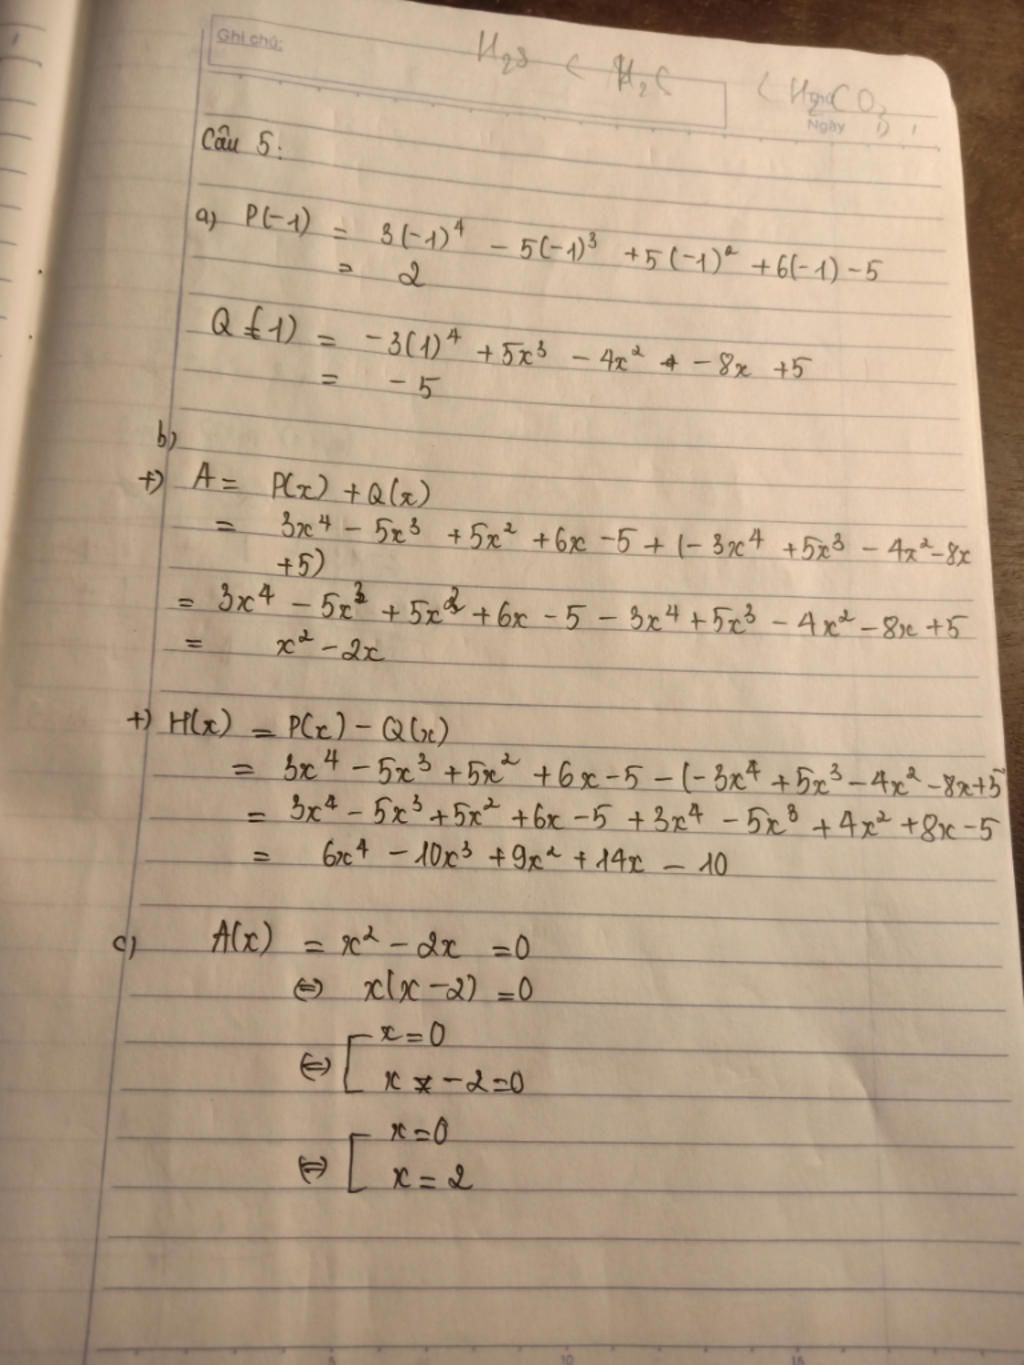 Ghi chú:
H₂S < H₂C < H₂CO₃
Ngày
Câu 5:
a) P(-1) = 3(-1)⁴ - 5(-1)³ + 5(-1)² + 6(-1) - 5
= 2
Q(-1) = -3(1)⁴ + 5x³ - 4x² - 8x + 5
= -5
b)
+) A = P(x) + Q(x)
= 3x⁴ - 5x³ + 5x² + 6x - 5 + (-3x⁴ + 5x³ - 4x² - 8x
+5)
= 3x⁴ - 5x³ + 5x² + 6x - 5 - 3x⁴ + 5x³ - 4x² - 8x + 5
= x² - 2x
+) H(x) = P(x) - Q(x)
= 3x⁴ - 5x³ + 5x² + 6x - 5 - (-3x⁴ + 5x³ - 4x² - 8x + 5
= 3x⁴ - 5x³ + 5x² + 6x - 5 + 3x⁴ - 5x³ + 4x² + 8x - 5
= 6x⁴ - 10x³ + 9x² + 14x - 10
c) A(x) = x² - 2x = 0
⇔ x(x - 2) = 0
⇔ [ x = 0
x - 2 = 0
⇔ [ x = 0
x = 2
5 10 15